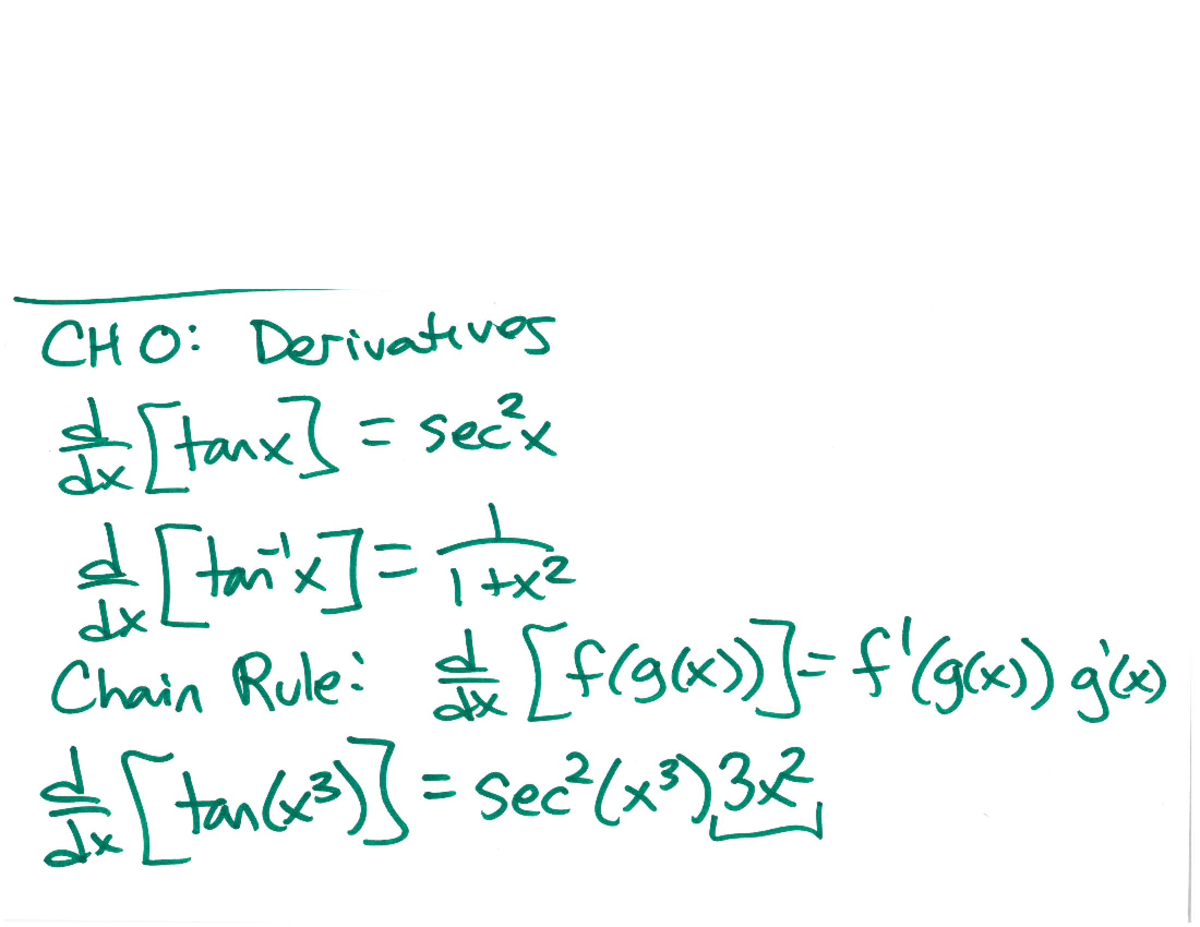 CH 0: Derivatives
d/dx [tan x] = sec²x
d/dx [tan⁻¹x] = 1/(1+x²)
Chain Rule: d/dx [f(g(x))] = f'(g(x)) g'(x)
d/dx [tan(x³)] = sec²(x³) 3x²